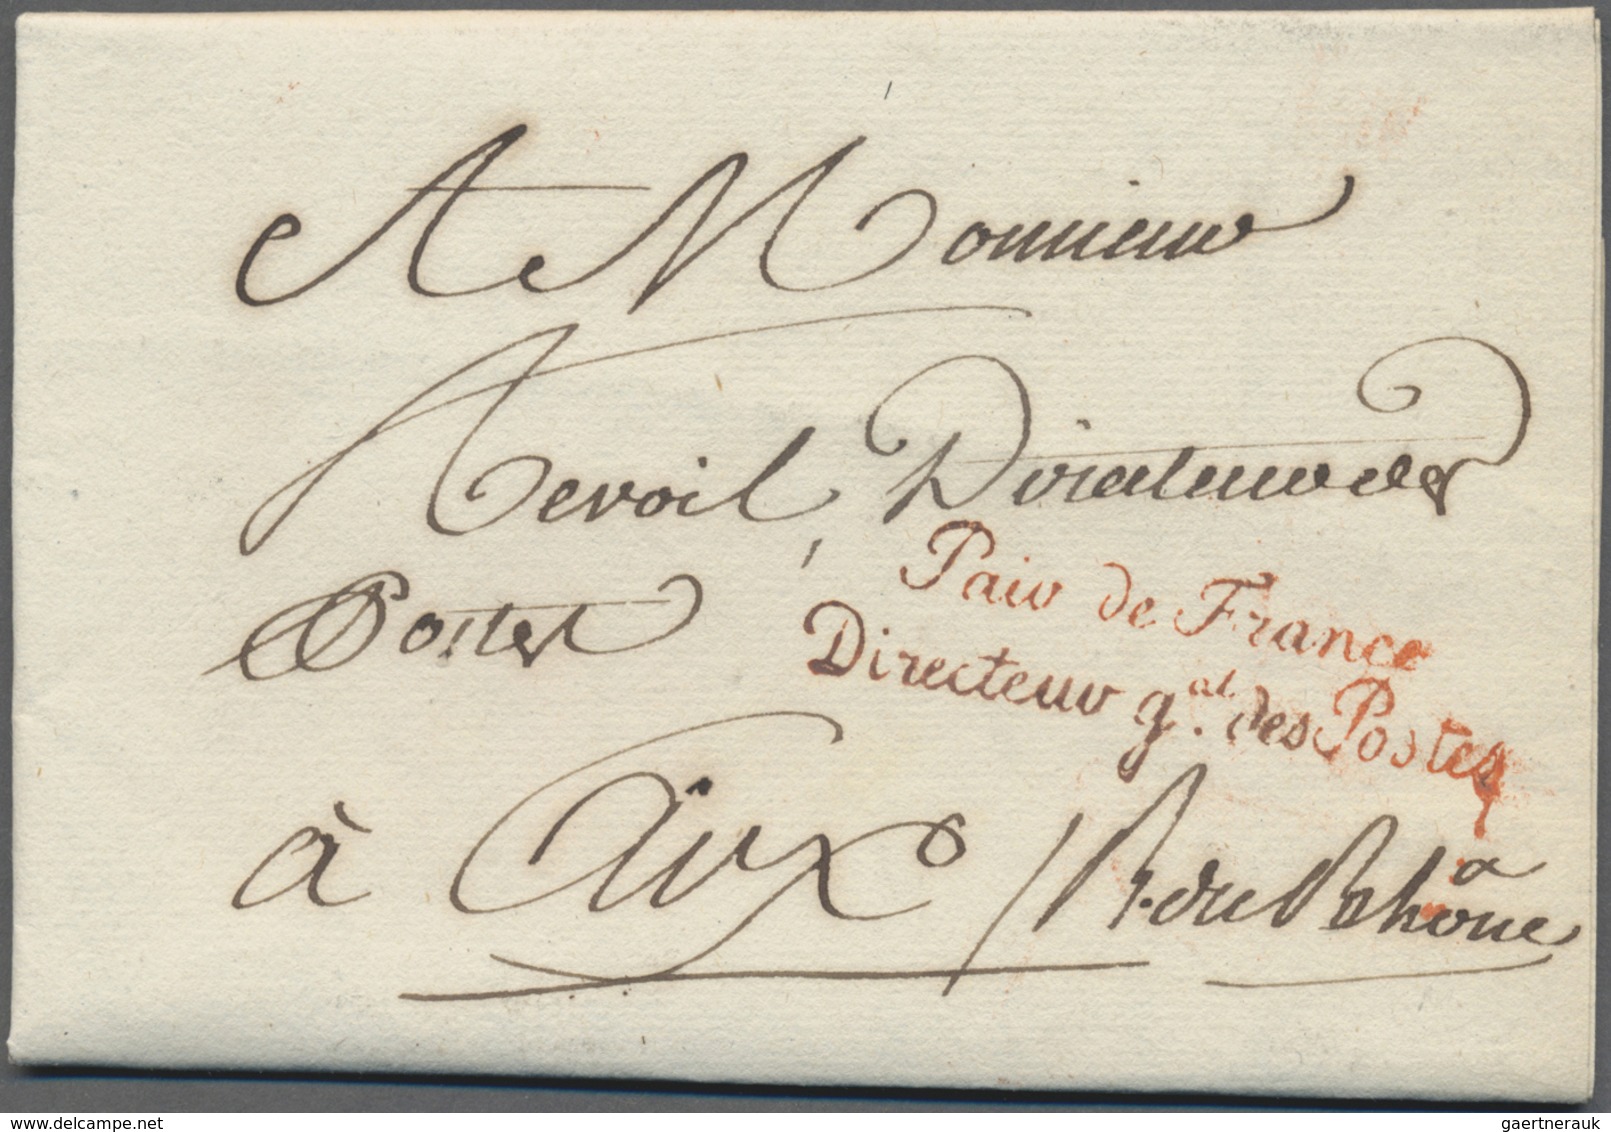 A Monsieur
Revoil Directeur des
Postes
Pair de France
Directeur g.al des Postes
à Aix / B. du Rhône
gaertnerauk